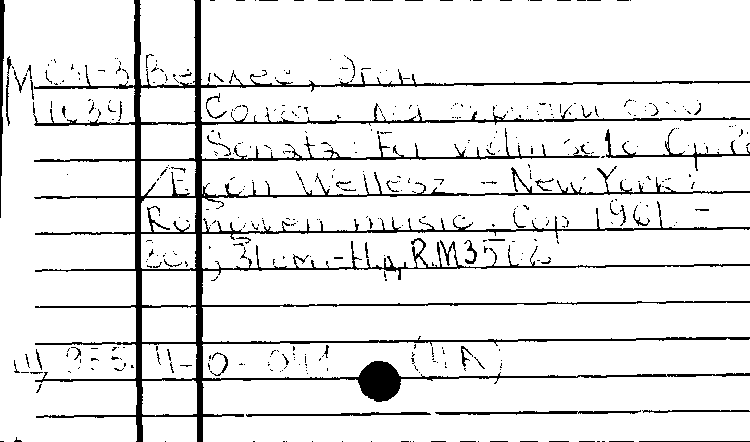 М С41-3 Веллес, Эгон
1034 Соната. для скрипки соло
Sonata: For violin solo Op.
/ Egon Wellesz - New York:
Rongwen music, Cop 1961. -
31 cm. - Н.д. R.M.3502
Ш 955. 4-0-041 (4А)